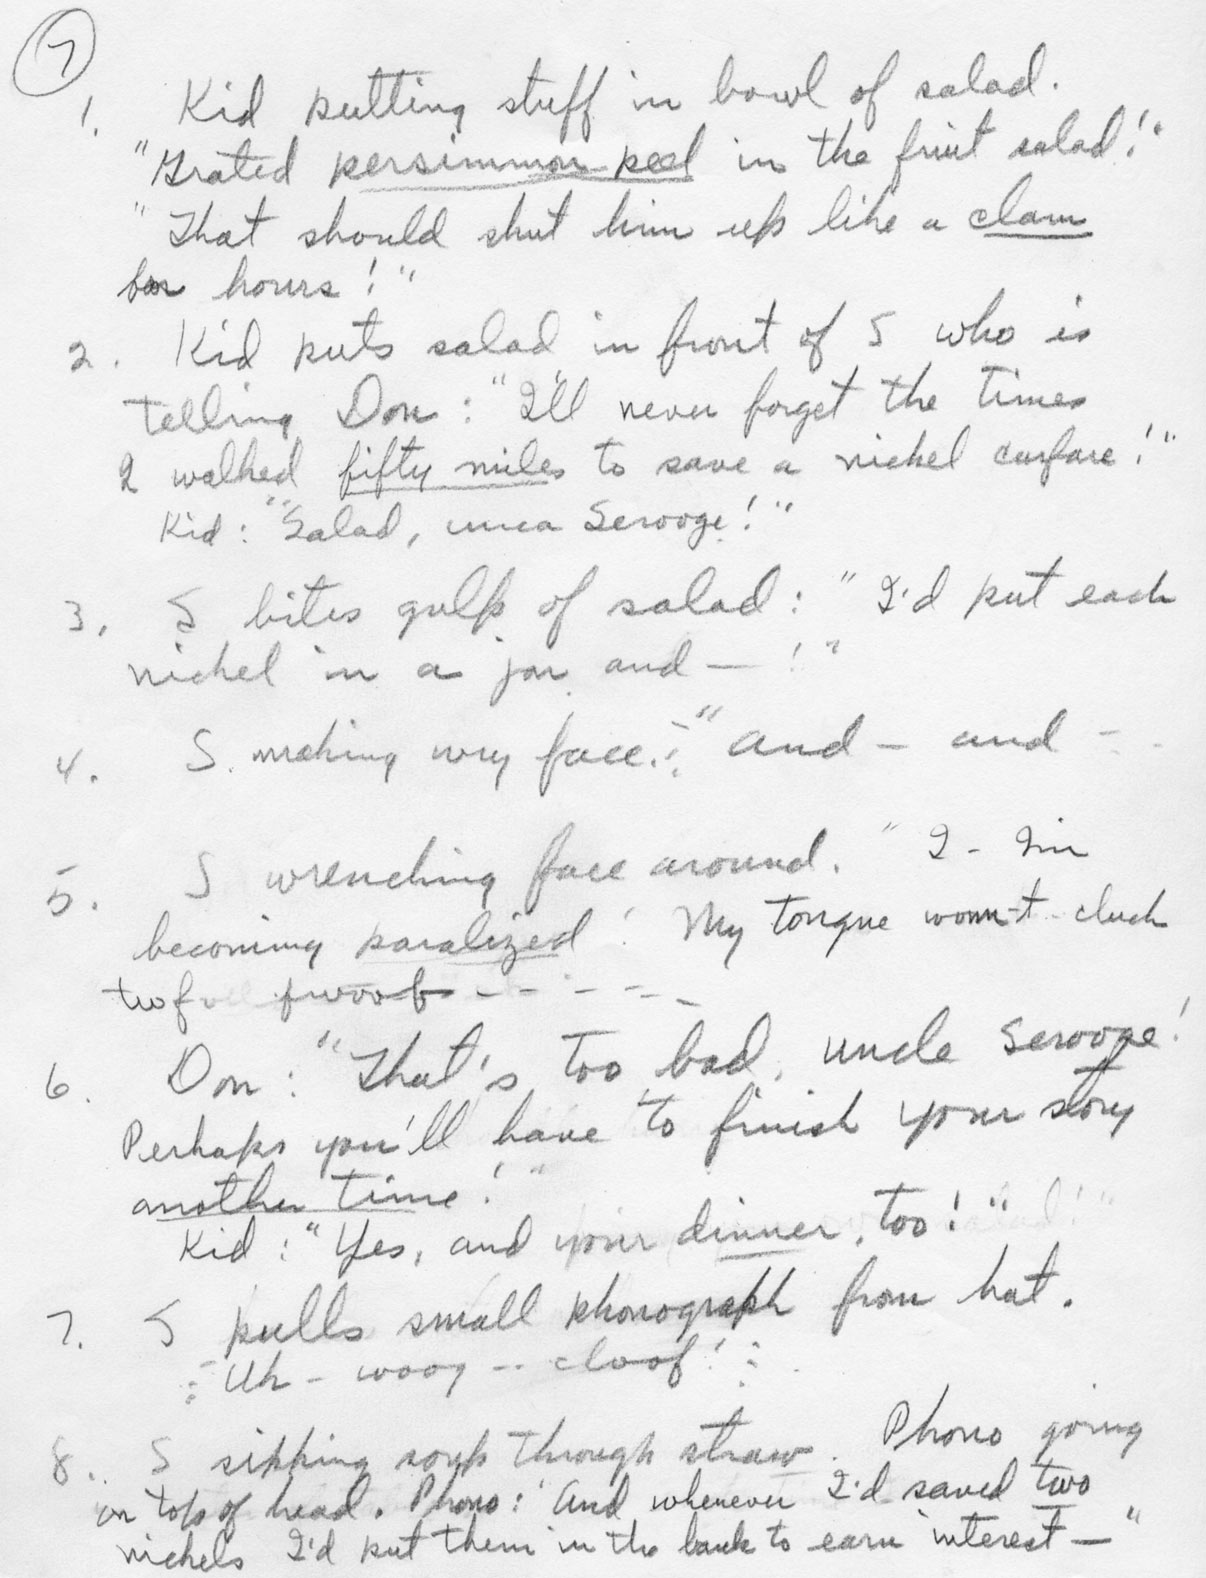 7
1. Kid putting stuff in bowl of salad.
"Grated persimmon peel in the fruit salad!"
"That should shut him up like a clam
for hours!"
2. Kid puts salad in front of S who is
telling Don: "I'll never forget the times
I walked fifty miles to save a nickel carfare!"
Kid: "Salad, unca Scrooge!"
3. S bites gulp of salad: "I'd put each
nickel in a jar and — !"
4. S. making wry face: "and - and - -
5. S wrenching face around. "I - I'm
becoming paralized! My tongue wonn-t cluck
twof fwoob - - - - - -
6. Don: "That's too bad, uncle Scrooge!
Perhaps you'll have to finish your story
another time!"
Kid: "Yes, and your dinner, too!"
7. S pulls small phonograph from hat.
Uh - woog -- cloof!
8. S sipping soup through straw. Phono going
on top of head. Phono: "And whenever I'd saved two
nickels I'd put them in the bank to earn interest —"